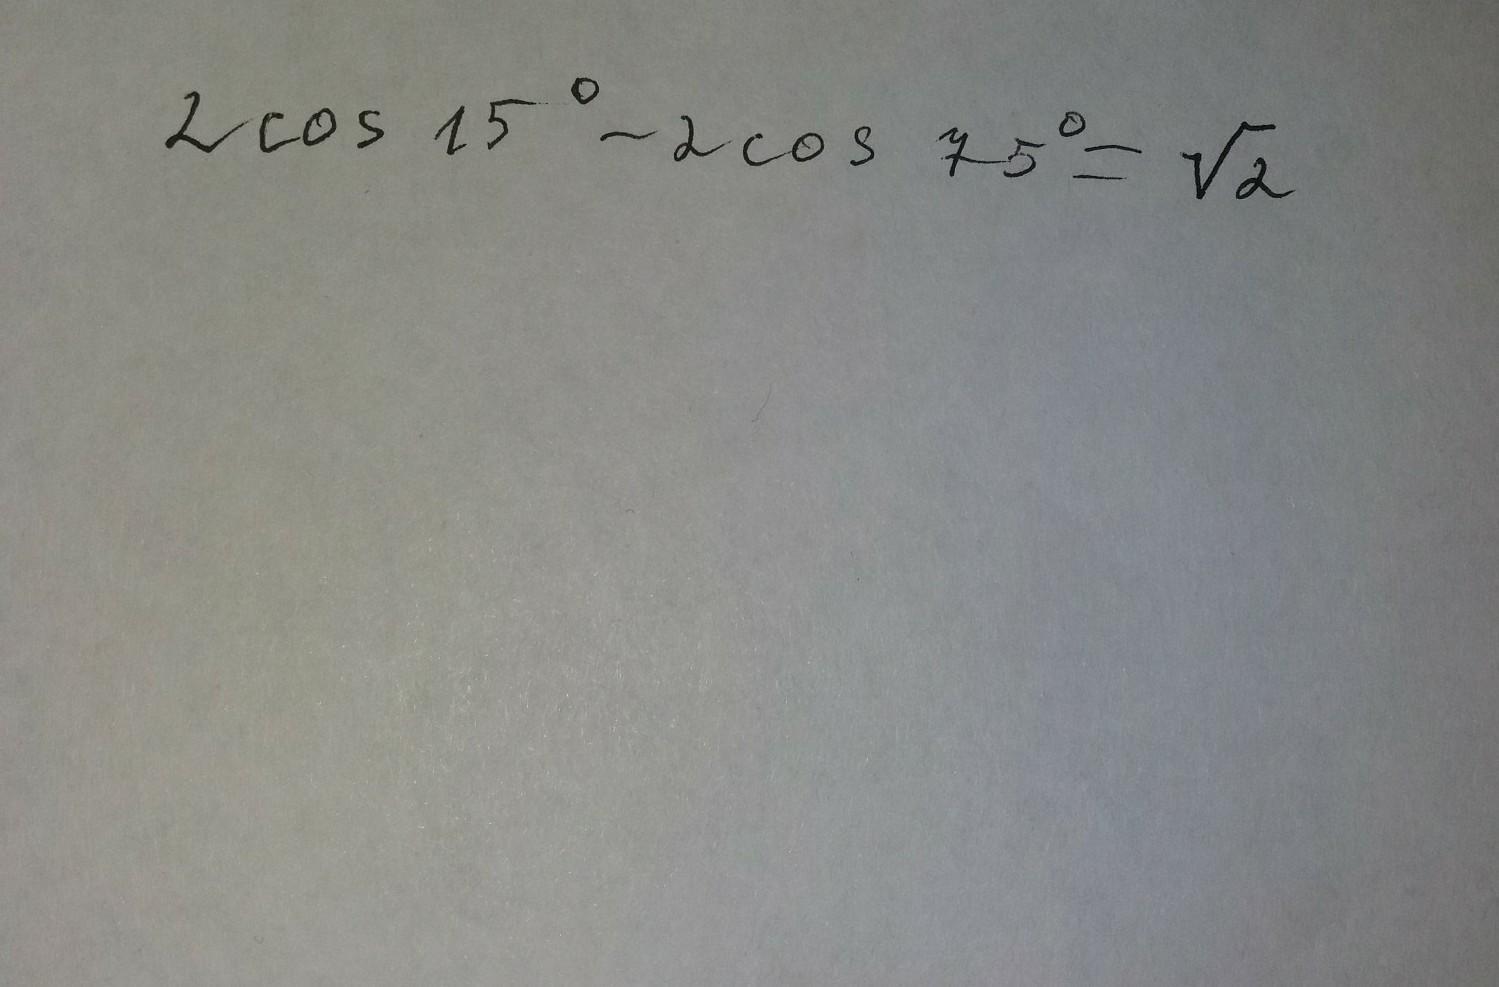 2cos 15° - 2cos 75° = √2